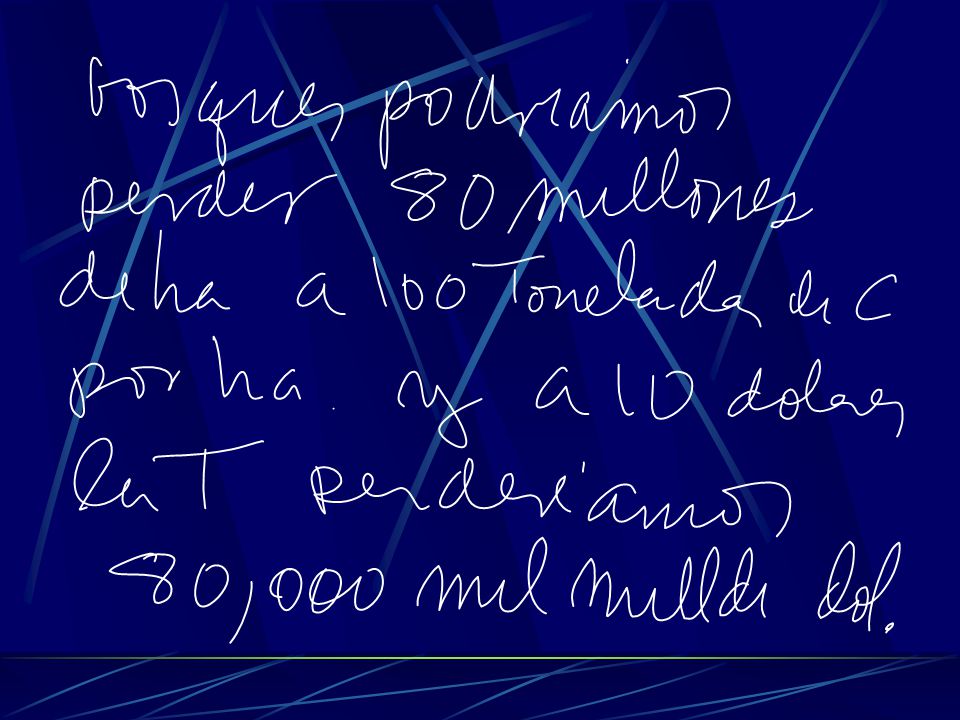 bosques podriamos
perder 80 millones
de ha a 100 Toneladas de C
por ha. y a 10 dolares
la T perderíamos
80,000 mil mill de dol.